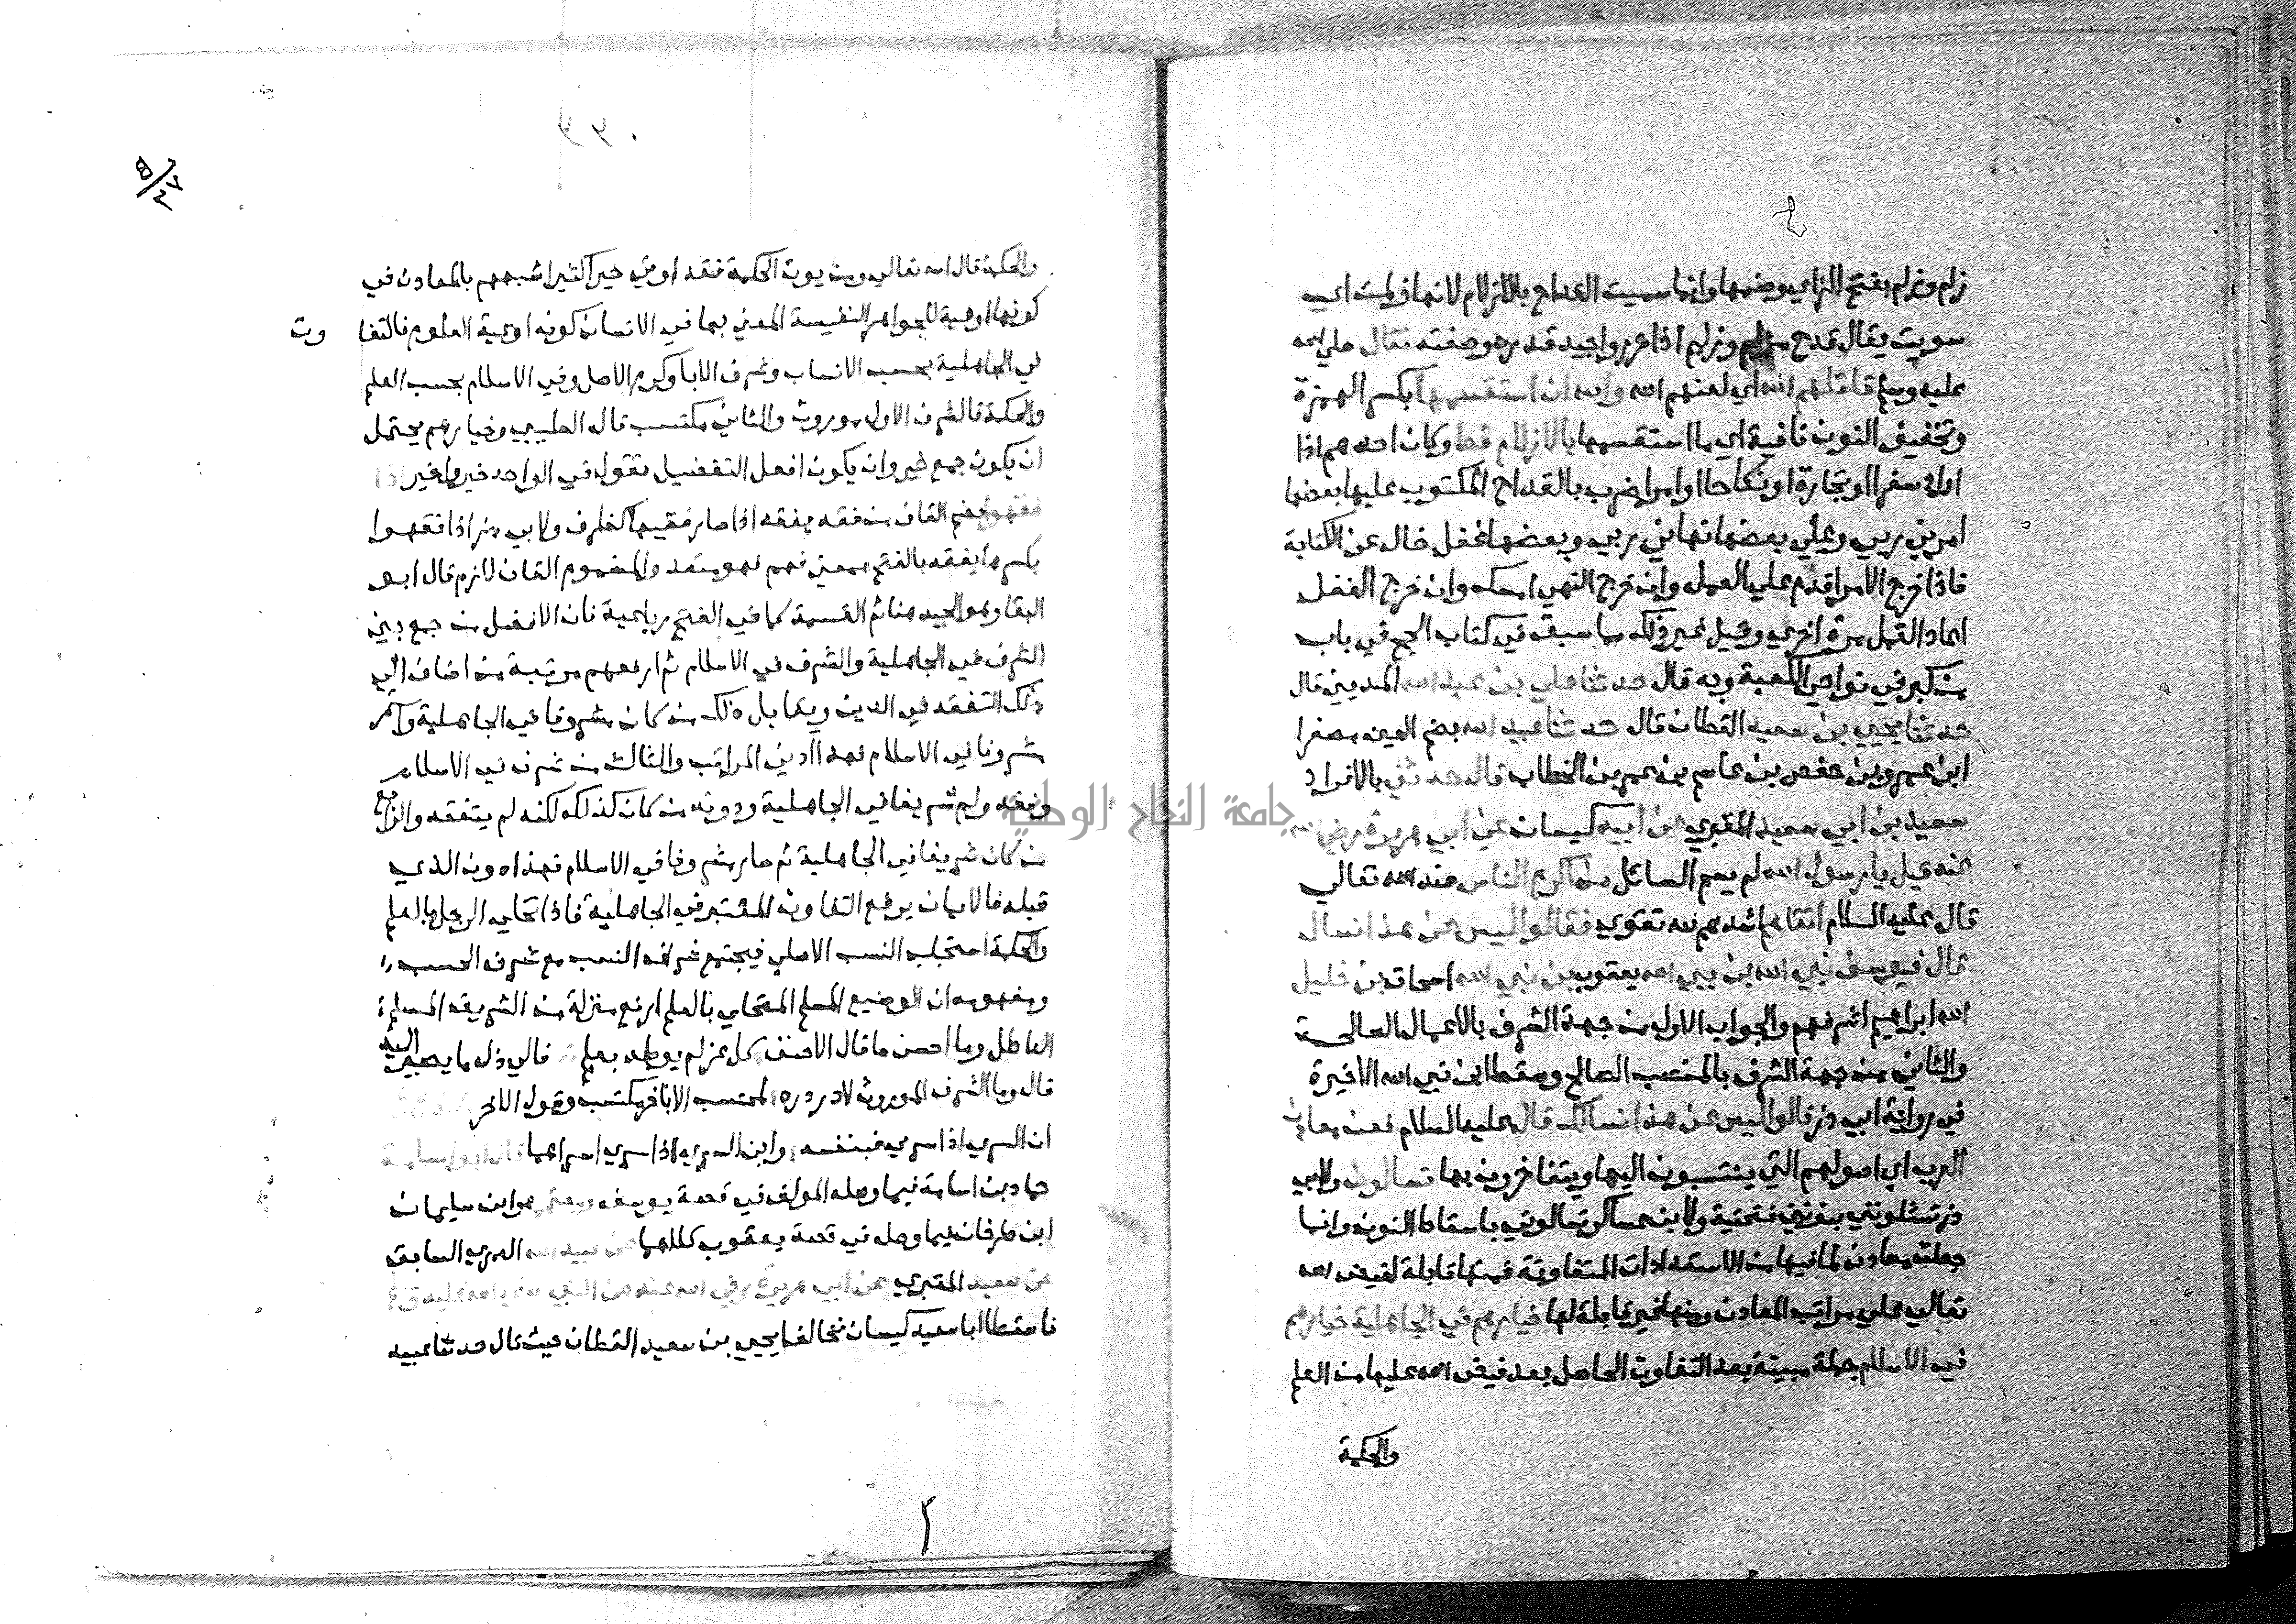 زلم وزلم بفتح الزاي وضمها وانما سميت القداح بالازلام لانها زلمت اي
سويت يقال قدح مزلم وزلم اذا حرر واجيد قده وصفته فقال صلي الله
عليه وسلم قاتلهم الله اي لعنهم الله والله ان استقسما بكسر الهمزة
وتخفيف النون نافية اي ما استقسما بالازلام قط وكان احدهم اذا
اراد سفرا او تجارة او نكاحا او امرا ضرب بالقداح المكتوب علي بعضها
امرني ربي وعلي بعضها نهاني ربي وبعضها غفل خال عن الكتابة
فاذا خرج الامر اقدم علي العمل وان خرج النهي امسك وان خرج الغفل
اعاد العمل مرة اخري وقيل غير ذلك مما سبق في كتاب الحج في باب
من كبر في نواحي الكعبة وبه قال حدثنا علي بن عبد الله المديني قال
حدثنا يحيي بن سعيد القطان قال حدثنا عبيد الله بضم العين مصغرا
ابن عمرو بن حفص بن عاصم بن عمر بن الخطاب قال حدثني بالافراد
سعيد بن ابي سعيد المقبري عن ابيه كيسان عن ابي هريرة رضي الله
عنه قيل يا رسول الله لم يسم السائل من اكرم الناس عند الله تعالي
قال عليه السلام اتقاهم اشدهم لله تقوي فقالوا ليس عن هذا نسال
قال فيوسف نبي الله بن نبي الله يعقوب بن نبي الله اسحاق بن خليل
الله ابراهيم اشرفهم والجواب الاول من جهة الشرف بالاعمال الصالحة
والثاني من جهة الشرف بالنسب الصالح وسقط ابن نبي الله الاخيرة
في رواية ابي ذر قالوا ليس عن هذا نسالك قال عليه السلام فعن معادن
العرب اي اصولهم التي ينتسبون اليها ويتفاخرون بها تسالون ولابي
ذر تسئلونني بنونين فتحتية ولابن عساكر تسالوني باسقاط النون وانما
جعلت معادن لما فيها من الاستعدادات المتفاوتة فمنها قابلة لفيض الله
تعالي علي مراتب المعادن ومنها غير قابلة لها خيارهم في الجاهلية خيارهم
في الاسلام جملة مبينة بعد التفاوت الحاصل بعد فيض الله عليها من العلم
والحكمة
والحكمة قال الله تعالي ومن يوت الحكمة فقد اوتي خيرا كثيرا شبههم بالمعادن في
كونها اوعية للجواهر النفيسة المعني بها في الانسان كونه اوعية العلوم فالتفاوت
في الجاهلية بحسب الانساب وشرف الابا وكرم الاصل وفي الاسلام بحسب العلم
والحكمة فالشرف الاول موروث والثاني مكتسب قال الطيبي وخيارهم يحتمل
ان يكون جمع خير وان يكون افعل التفضيل تقول في الواحد خير واخير اذا
فقهوا بضم القاف من فقه يفقه اذا صار فقيها كظرف ولابي ذر اذا فقهوا
بكسرها يفقه بالفتح بمعني فهم فهو متعد والمضموم القاف لازم قال ابو
البقا وهو الجيد هنا ثم القسمة كما في الفتح رباعية فان الافضل من جمع بين
الشرف في الجاهلية والشرف في الاسلام ثم ارفعهم مرتبة من اضاف الي
ذلك التفقه في الدين ويقابل ذلك من كان مشروفا في الجاهلية واستمر
مشروفا في الاسلام فهذا ادني المراتب والثالث من شرف في الاسلام
وفقه ولم شريفا في الجاهلية ودونه من كان كذلك لكنه لم يتفقه والرابع
من كان شريفا في الجاهلية ثم صار مشروفا في الاسلام فهذا دون الذي
قبله فالايمان يرفع التفاوت المعتبر في الجاهلية فاذا تحلي الرجل بالعلم
والحكمة استجلب النسب الاصلي فيجتمع شرف النسب مع شرف الحسب
ومفهومه ان الوضيع المسلم المتحلي بالعلم ارفع منزلة من الشريف المسلم
العاطل وما احسن ما قال الاحنف كل عز لم يوطد بعلم فالي ذل ما يصير اليه
قال وما الشرف الموروث لا در دره لمحتسب الا باخر مكتسب وقول الاخر
ان السري اذا سري فبنفسه وابن السري اذا سري اسراهما قال ابو اسامة
حماد بن اسامة فيما وصله المولف في قصة يوسف ومعتمر هو ابن سليمان
ابن طرفان فيما وصله في قصة يعقوب كلاهما عن عبيد الله العمري السابق
عن سعيد المقبري عن ابي هريرة رضي الله عنه عن النبي صلي الله عليه وسلم
فاسقطا ابا سعيد كيسان فخالفا يحيي بن سعيد القطان حيث قال حدثنا عبيد
جامعة النجاح الوطنية